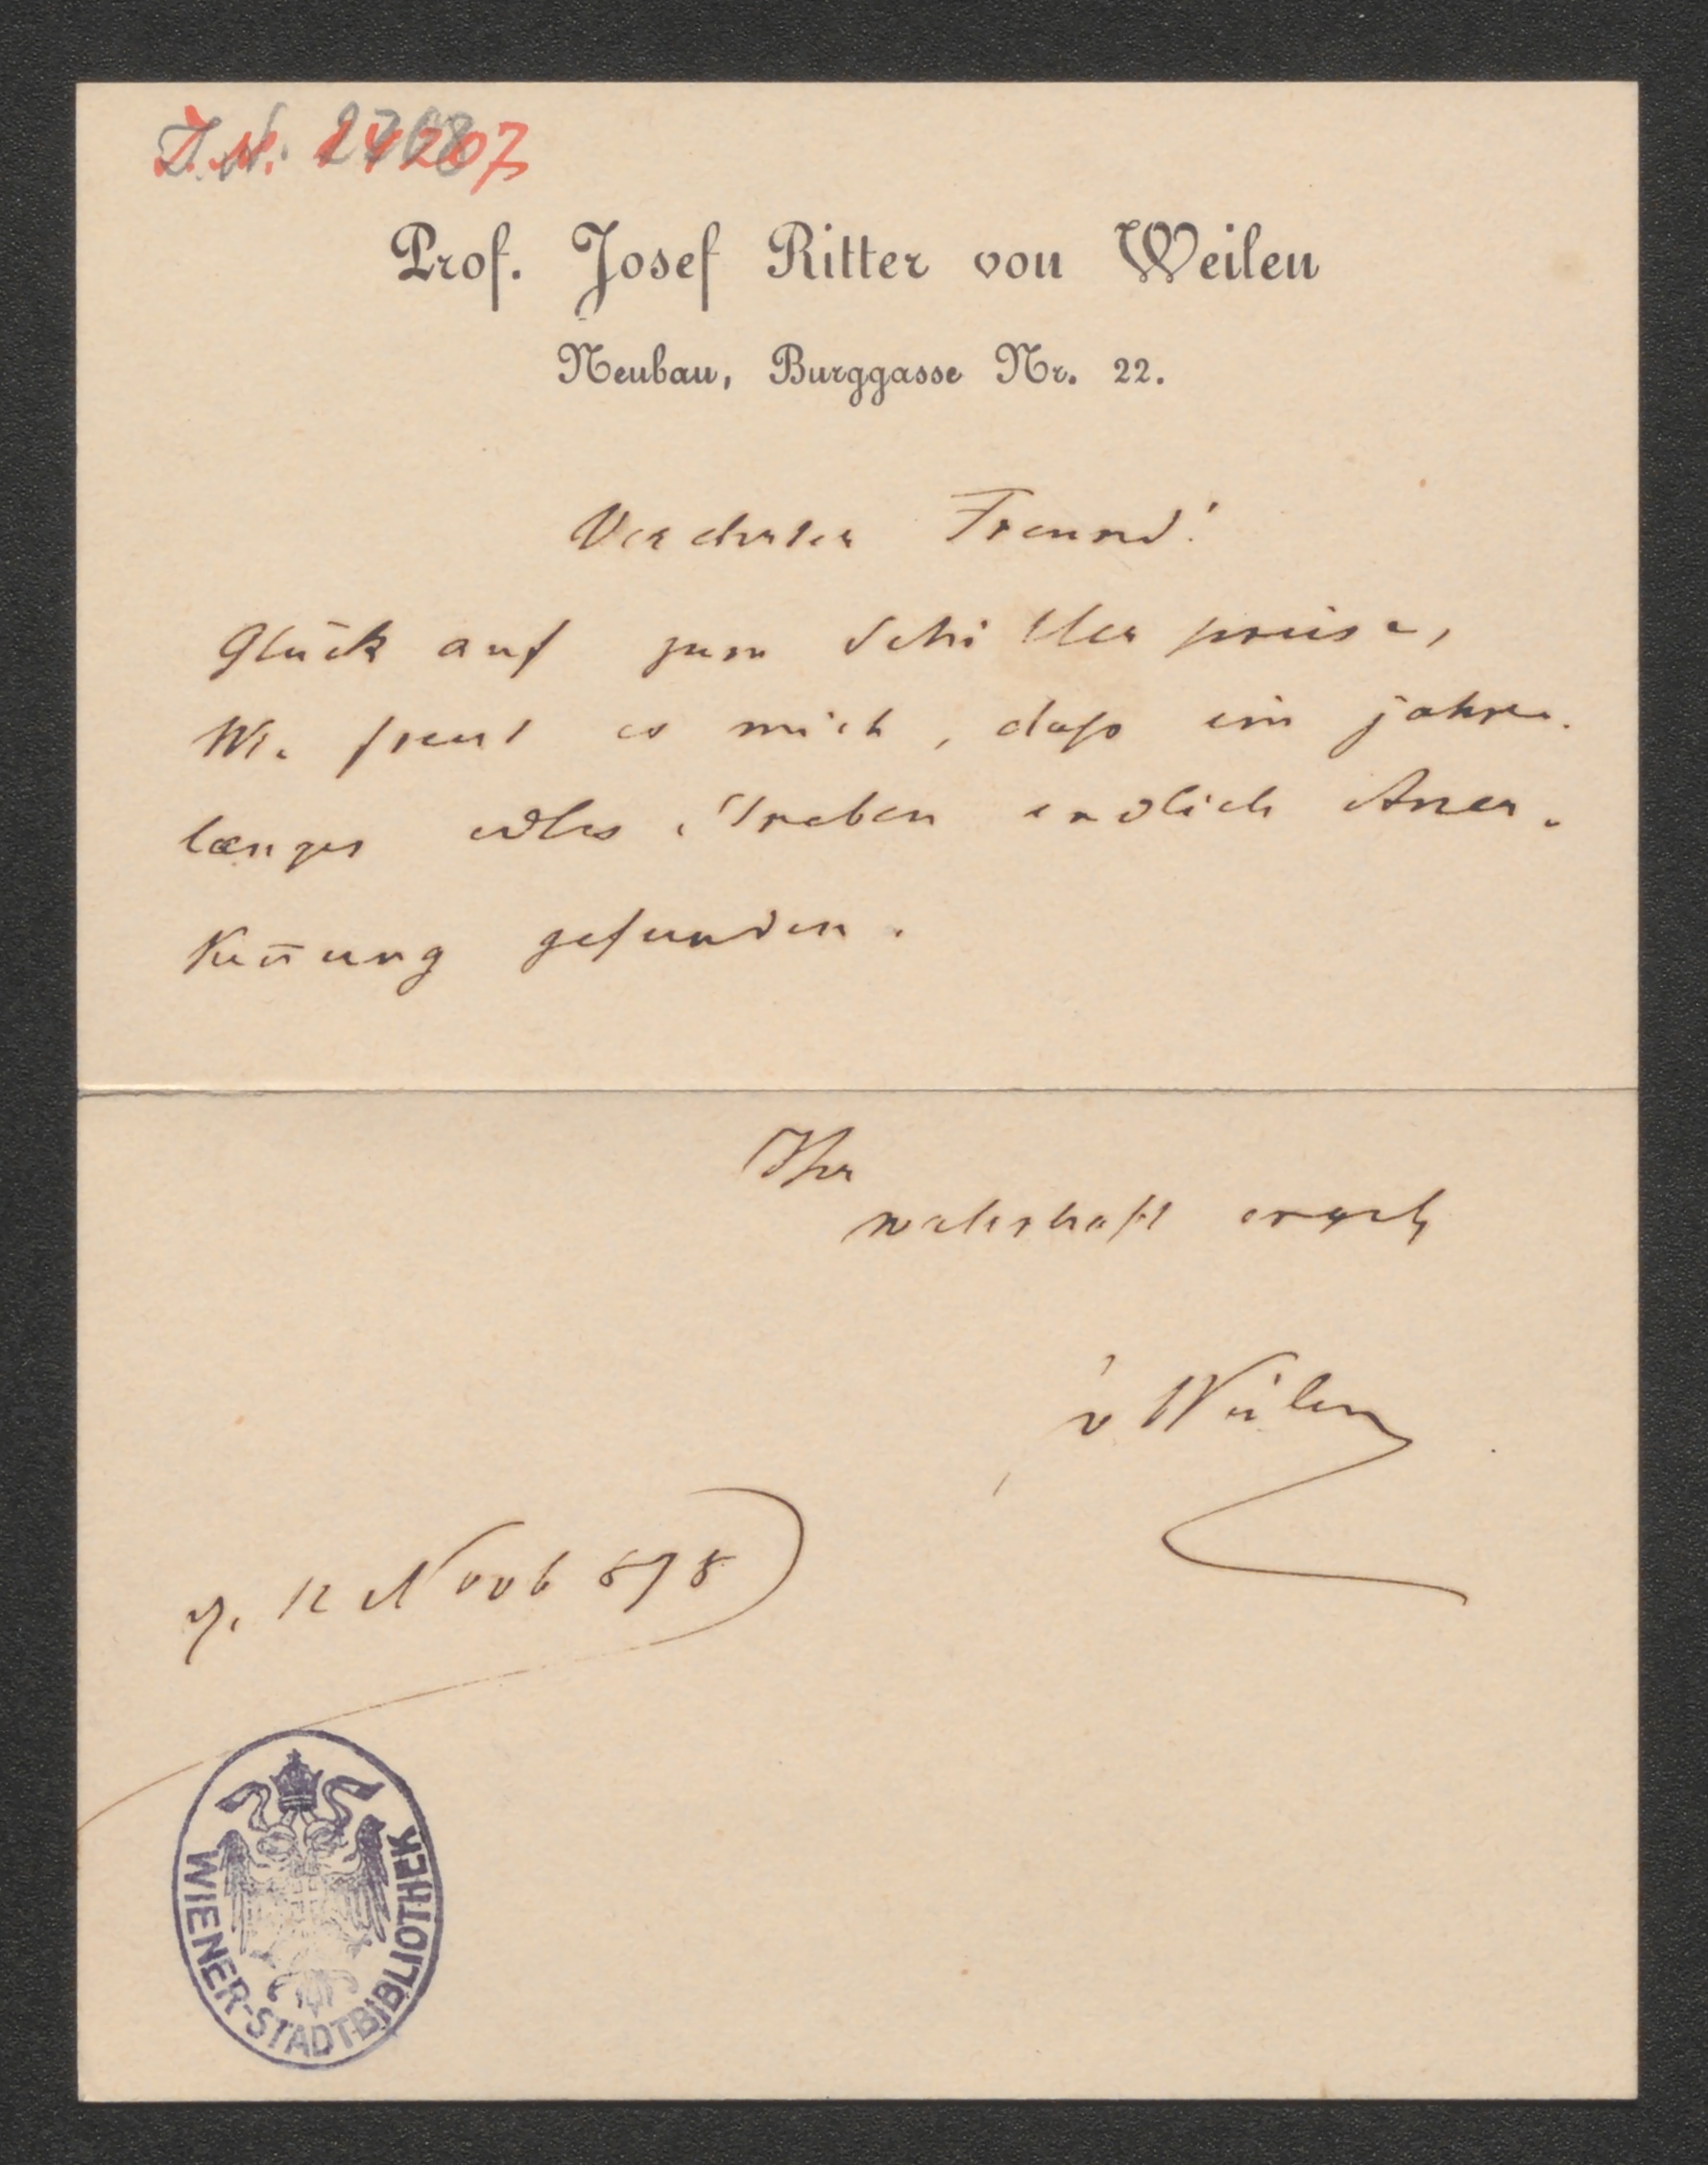 I.N. 14207
Prof. Josef Ritter von Weilen
Neubau, Burggasse Nr. 22.
Verehrter Freund!
Glück auf zum Schillerpreise,
Wie freut es mich, daſs ein jahre-
langes edles Streben endlich Aner-
ken̄ung gefunden.
Ihr
wahrhaft ergeb
v Weilen
12 Novb 878
WIENER-STADTBIBLIOTHEK